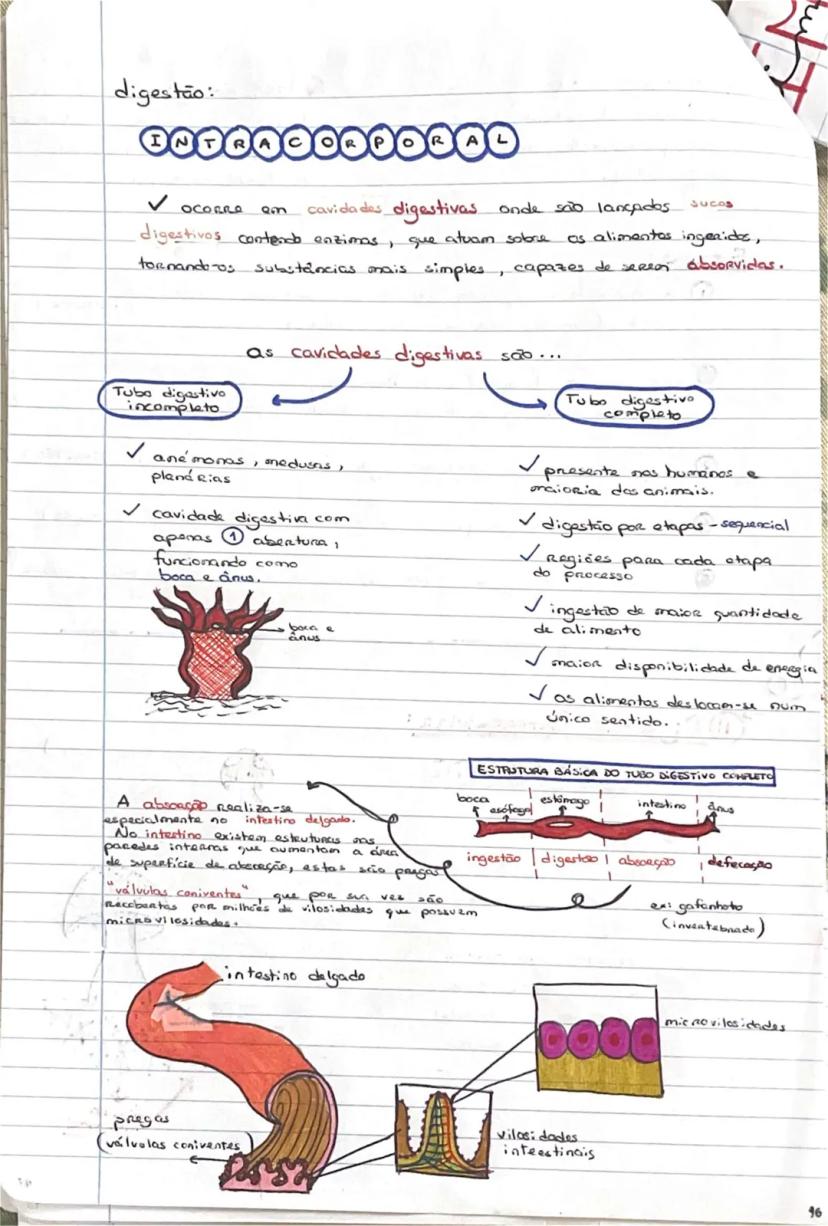 digestão:
INTRACORPORAL
✓ ocorre em cavidades digestivas onde são lançados sucos
digestivos contendo enzimas, que atuam sobre os alimentos ingeridos,
tornando-os substâncias mais simples, capazes de serem absorvidas.
as cavidades digestivas são...
Tubo digestivo
incompleto
✓ anémonas, medusas,
planárias
✓ cavidade digestiva com
apenas 1 abertura,
funcionando como
boca e ânus.
boca e
ânus
Tubo digestivo
completo
✓ presente nos humanos e
maioria dos animais.
✓ digestão por etapas - sequencial
✓ regiões para cada etapa
do processo
✓ ingestão de maior quantidade
de alimento
✓ maior disponibilidade de energia
✓ os alimentos deslocam-se num
único sentido.
ESTRUTURA BÁSICA DO TUBO DIGESTIVO COMPLETO
boca esófago estômago intestino ânus
ingestão digestão absorção defecação
ex: gafanhoto
(invertebrado)
A absorção realiza-se
especialmente no intestino delgado.
No intestino existem estruturas nas
paredes internas que aumentam a área
de superfície de absorção, estas são pregas
"válvulas coniventes", que por sua vez são
recobertas por milhões de vilosidades que possuem
microvilosidades.
intestino delgado
microvilosidades
pregas
(válvulas coniventes)
vilosidades
intestinais
96